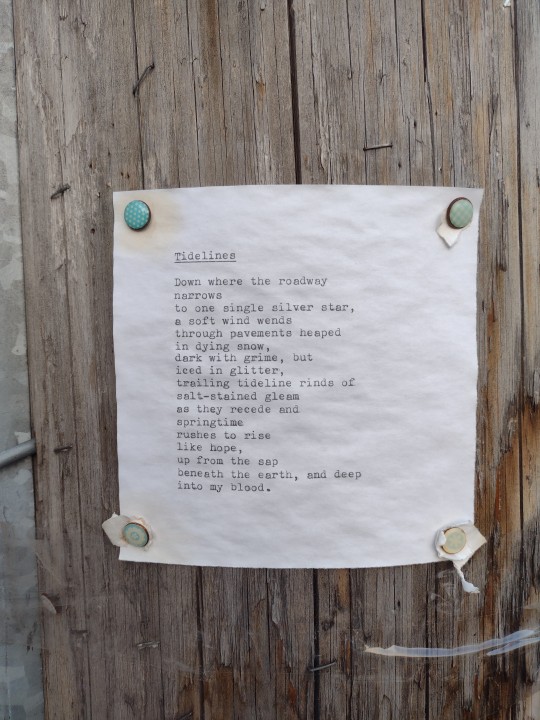 Tidelines
Down where the roadway
narrows
to one single silver star,
a soft wind wends
through pavements heaped
in dying snow,
dark with grime, but
iced in glitter,
trailing tideline rinds of
salt-stained gleam
as they recede and
springtime
rushes to rise
like hope,
up from the sap
beneath the earth, and deep
into my blood.